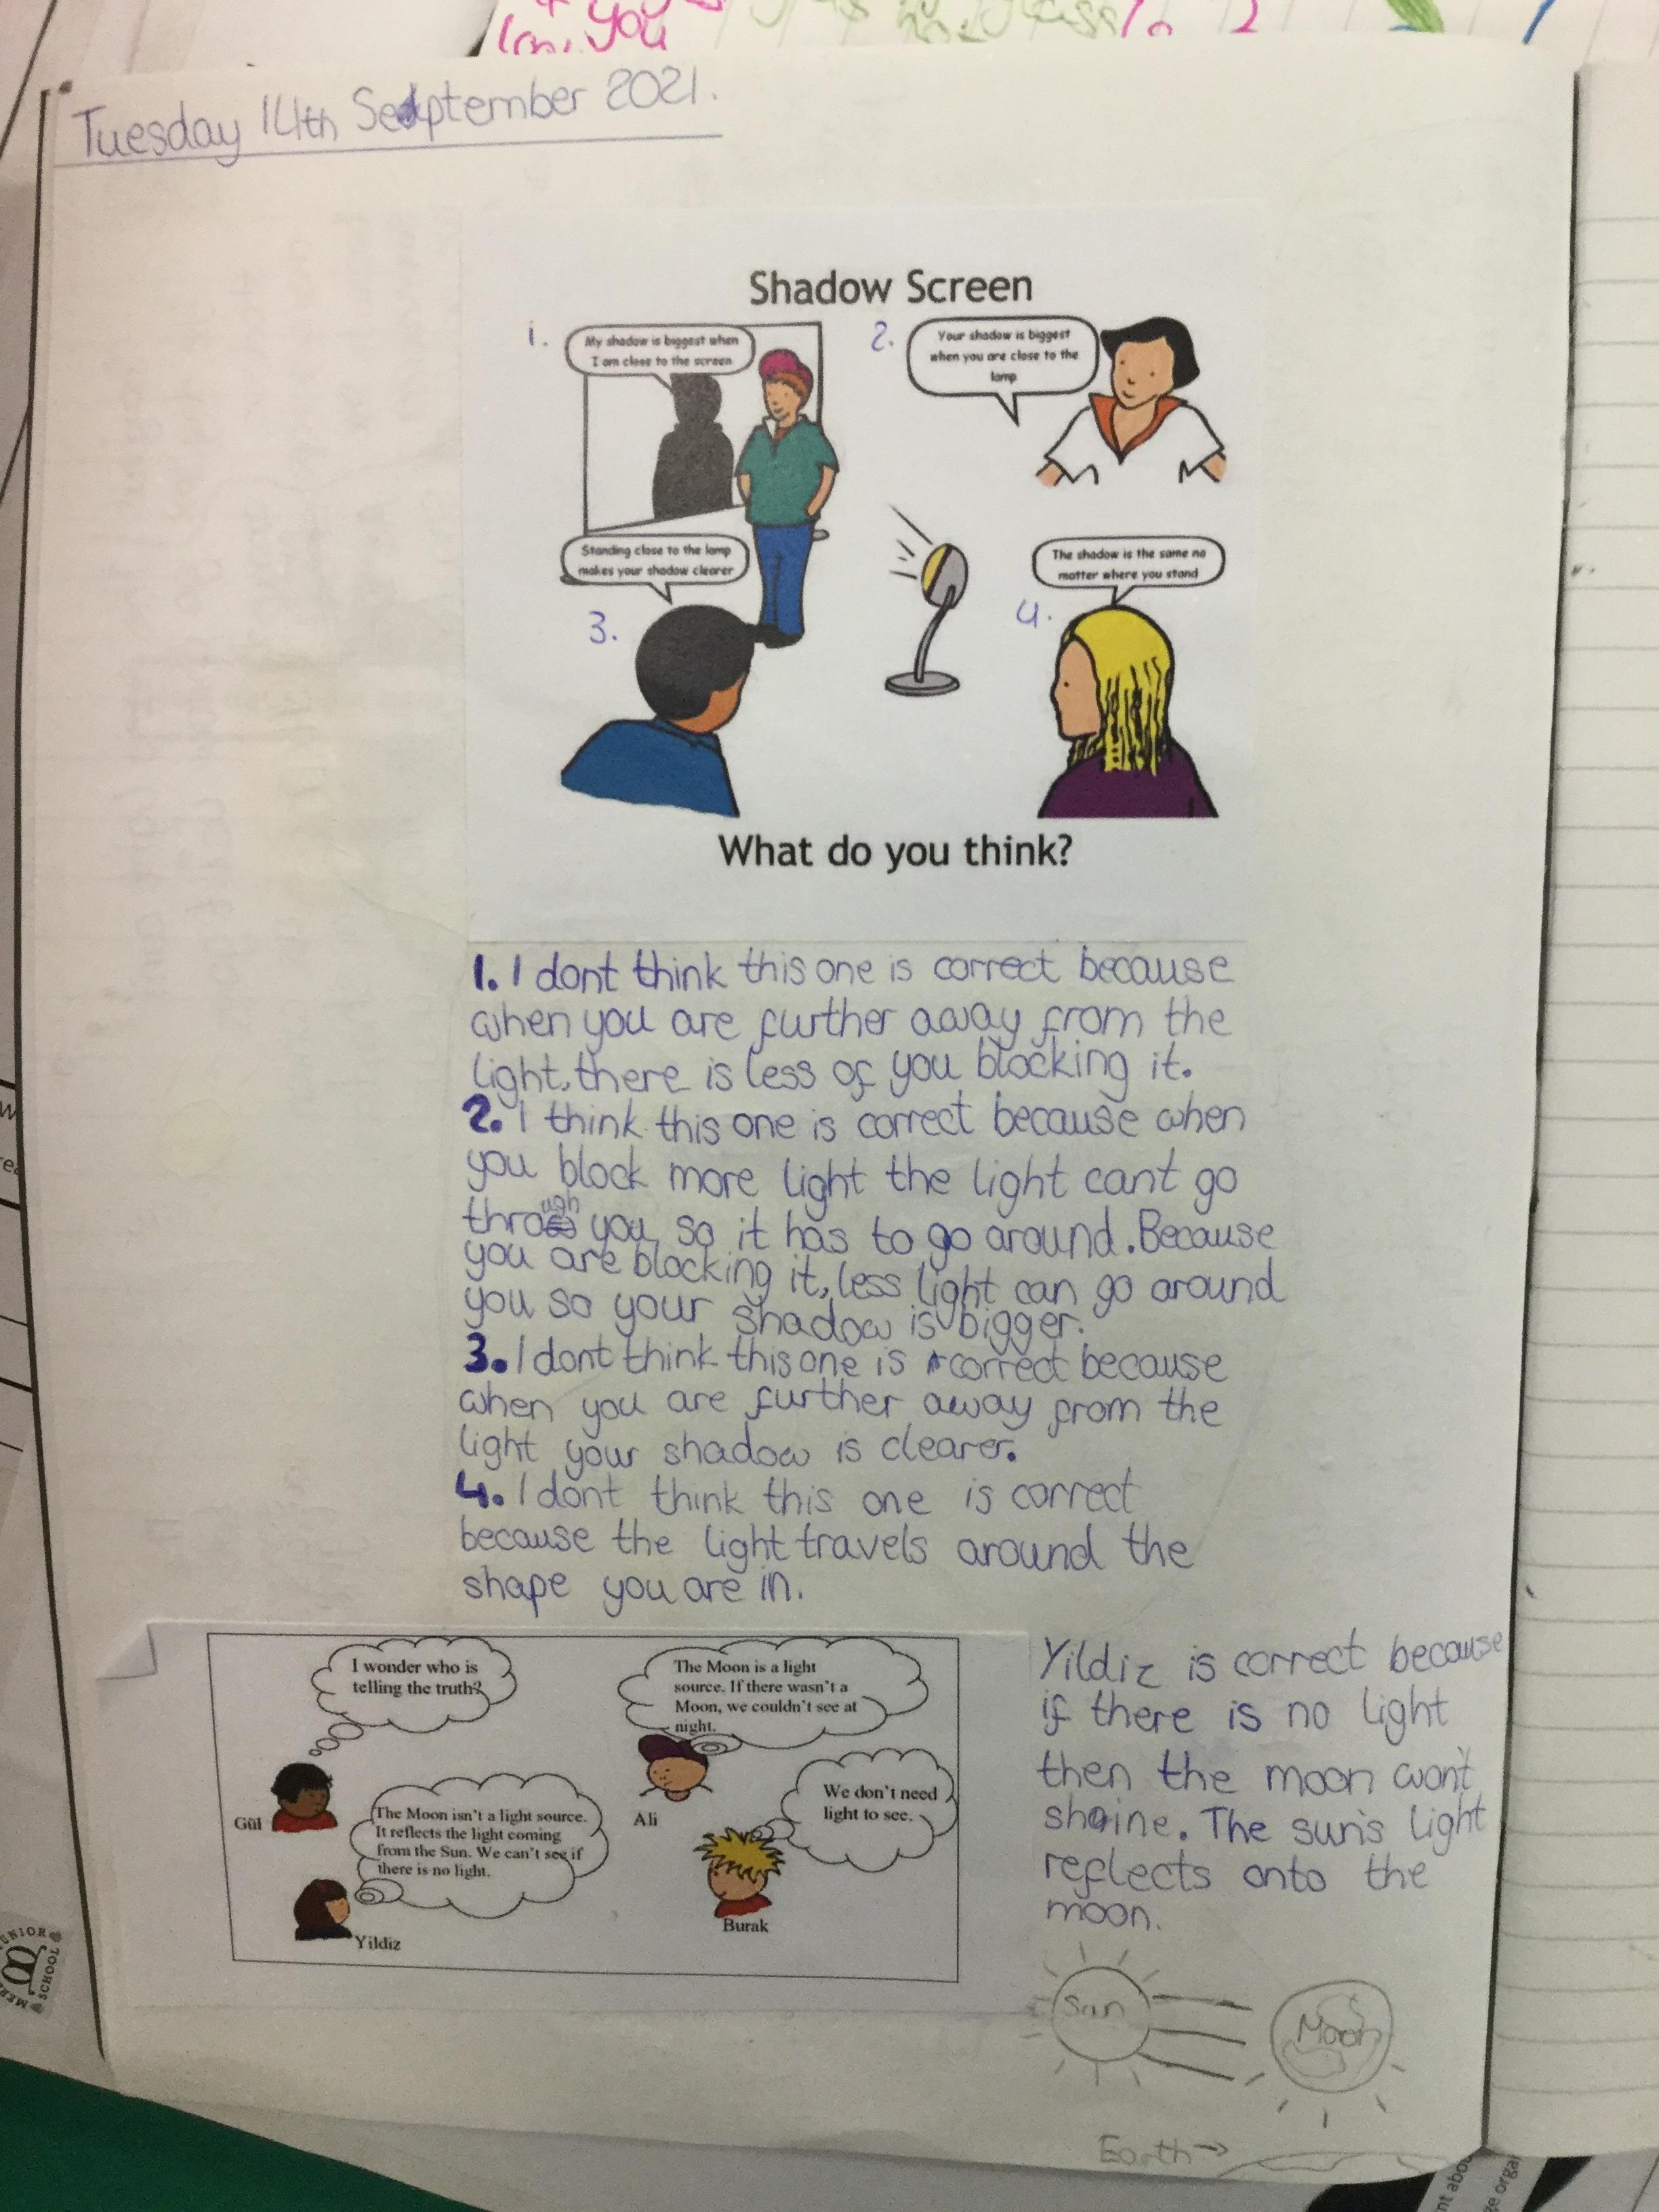 you
2
Tuesday 14th September 2021.
Shadow Screen
1.
My shadow is biggest when
I am close to the screen
2.
Your shadow is biggest
when you are close to the
lamp
Standing close to the lamp
makes your shadow clearer
3.
The shadow is the same no
matter where you stand
4.
What do you think?
1. I dont think this one is correct because
when you are further away from the
light, there is less of you blocking it.
2. I think this one is correct because when
you block more light the light cant go
through you so it has to go around. Because
you are blocking it, less light can go around
you so your shadow is bigger.
3. I dont think this one is correct because
when you are further away from the
light your shadow is clearer.
4. I dont think this one is correct
because the light travels around the
shape you are in.
I wonder who is
telling the truth?
Gül
The Moon is a light
source. If there wasn't a
Moon, we couldn't see at
night.
Ali
The Moon isn't a light source.
It reflects the light coming
from the Sun. We can't see if
there is no light.
Yildiz
We don't need
light to see.
Burak
Yildiz is correct because
if there is no light
then the moon won't
shaine. The sun's light
reflects onto the
moon.
Sun
Moon
Earth →
JUNIOR
SCHOOL
nt abou
ge orga